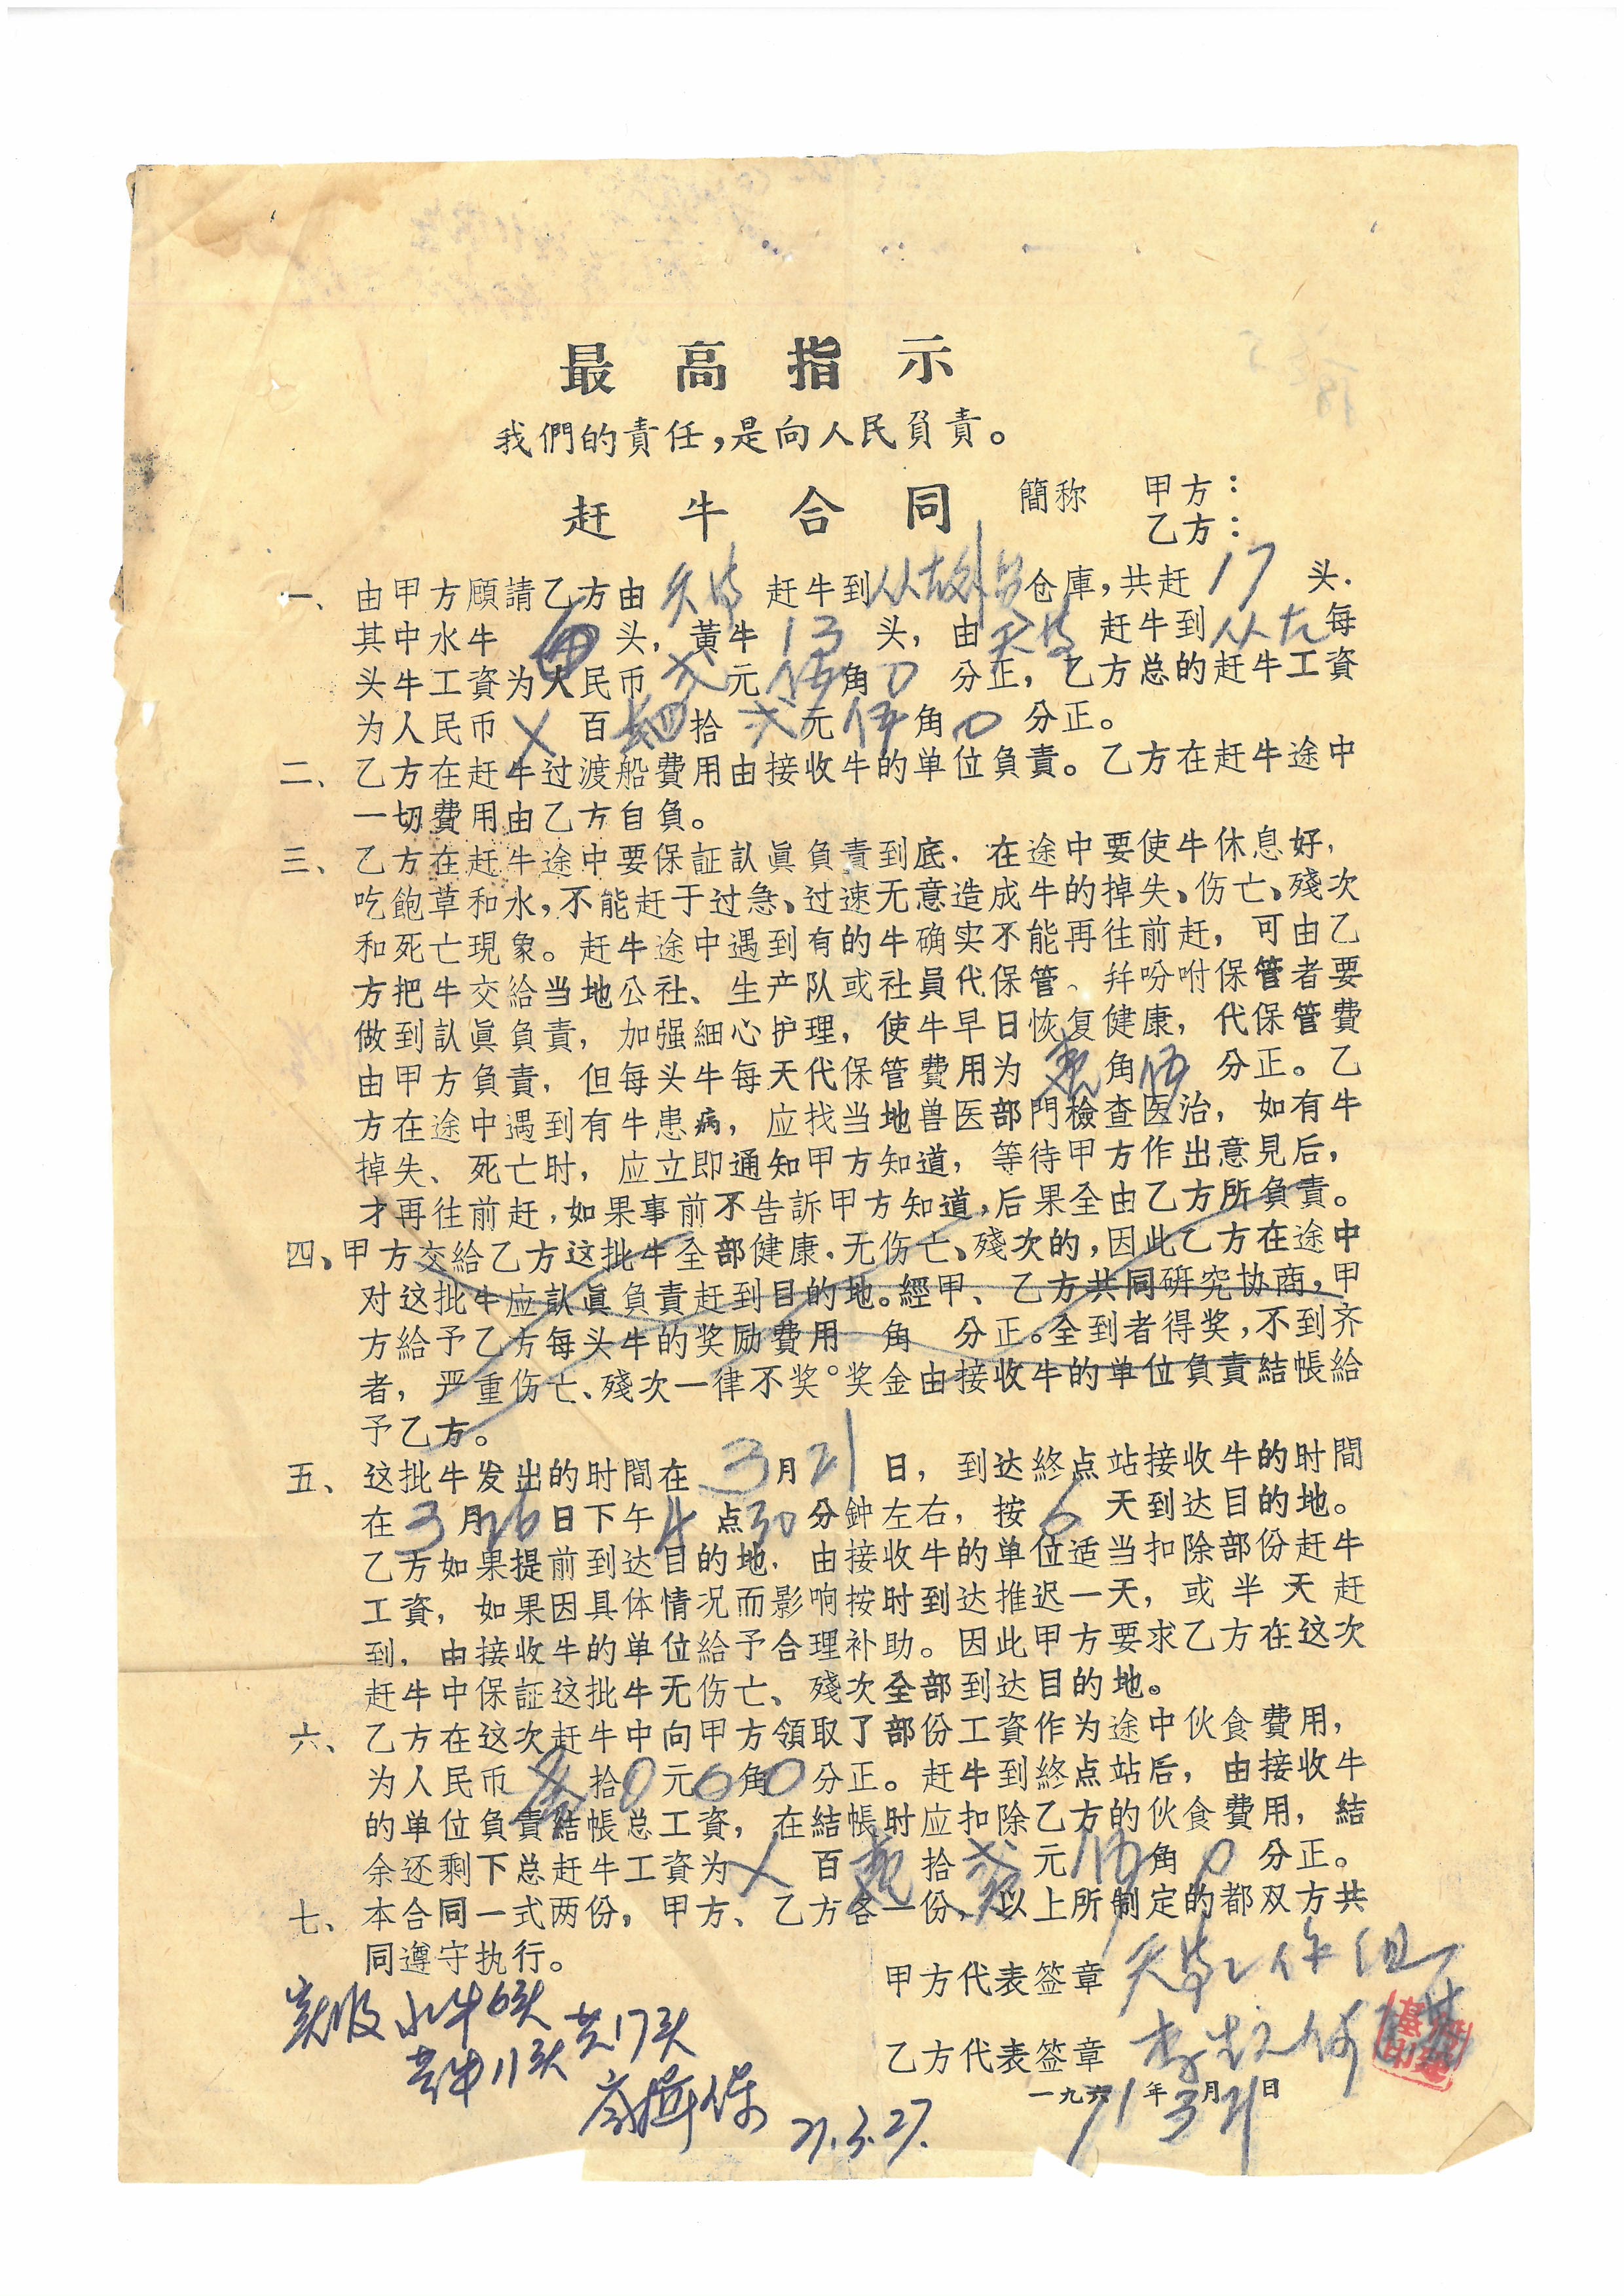 最高指示
我們的責任，是向人民負責。
赶牛合同 簡称 甲方：
乙方：
一、由甲方顾請乙方由 赶牛到从 仓庫，共赶 17 头.
其中水牛 头，黄牛 13 头，由 赶牛到从左每
头牛工資为人民币 弍 元 伍 角 0 分正，乙方总的赶牛工資
为人民币 X 百 四 拾 弍 元 伍 角 0 分正。
二、乙方在赶牛过渡船費用由接收牛的单位負責。乙方在赶牛途中
一切費用由乙方自負。
三、乙方在赶牛途中要保証認眞負責到底．在途中要使牛休息好，
吃飽草和水，不能赶于过急、过速无意造成牛的掉失、伤亡、殘次
和死亡現象。赶牛途中遇到有的牛确实不能再往前赶，可由乙
方把牛交給当地公社、生产队或社員代保管、幷吩咐保管者要
做到認眞負責，加强細心护理，使牛早日恢复健康，代保管費
由甲方負責，但每头牛每天代保管費用为 角 伍 分正。乙
方在途中遇到有牛患病，应找当地兽医部門檢查医治，如有牛
掉失、死亡时，应立即通知甲方知道，等待甲方作出意見后，
才再往前赶，如果事前不告訴甲方知道，后果全由乙方所負責。
四、甲方交給乙方这批牛全部健康．无伤亡、殘次的，因此乙方在途中
对这批牛应認眞負責赶到目的地。經甲、乙方共同研究协商，甲
方給予乙方每头牛的奖励費用 角 分正。全到者得奖，不到齐
者，严重伤亡、殘次一律不奖。奖金由接收牛的单位負責結帳給
予乙方。
五、这批牛发出的时間在 3 月 21 日，到达終点站接收牛的时間
在 3 月 26 日下午 4 点 30 分鈡左右，按 6 天到达目的地。
乙方如果提前到达目的地．由接收牛的单位适当扣除部份赶牛
工資，如果因具体情况而影响按时到达推迟一天，或半天赶
到，由接收牛的单位給予合理补助。因此甲方要求乙方在这次
赶牛中保証这批牛无伤亡、殘次全部到达目的地。
六、乙方在这次赶牛中向甲方領取了部份工資作为途中伙食費用，
为人民币 叁 拾 0 元 0 角 0 分正。赶牛到終点站后，由接收牛
的单位負責結帳总工資，在結帳时应扣除乙方的伙食費用，結
余还剩下总赶牛工資为 X 百 壹 拾 弍 元 伍 角 0 分正。
七、本合同一式两份，甲方、乙方各一份，以上所制定的都双方共
同遵守执行。
甲方代表签章 工作組
乙方代表签章 李
一九六 71 年 3 月 21 日
实收水牛6头
黄牛11头 共17头
71.3.27.